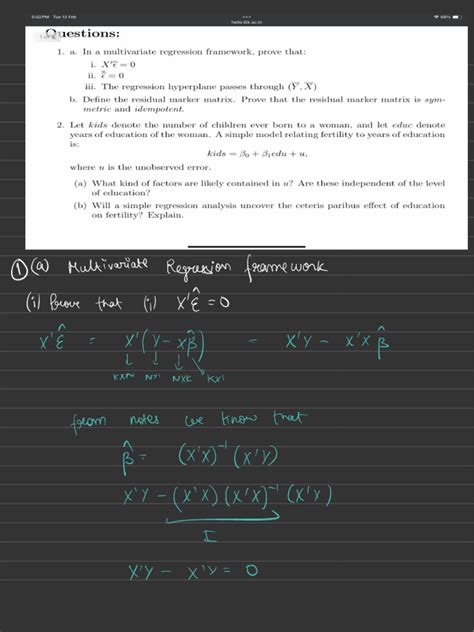 5:02 PM Tue 13 Feb
hello.iitk.ac.in
66%
Questions:
1. a. In a multivariate regression framework, prove that:
i. X'ε̂ = 0
ii. ε̂̄ = 0
iii. The regression hyperplane passes through (Ȳ, X̄)
b. Define the residual marker matrix. Prove that the residual marker matrix is symmetric and idempotent.
2. Let kids denote the number of children ever born to a woman, and let educ denote
years of education of the woman. A simple model relating fertility to years of education
is:
kids = β₀ + β₁edu + u,
where u is the unobserved error.
(a) What kind of factors are likely contained in u? Are these independent of the level
of education?
(b) Will a simple regression analysis uncover the ceteris paribus effect of education
on fertility? Explain.
① (a) Multivariate Regression framework
(i) Prove that (i) X'ε̂ = 0
X'ε̂ = X'(Y - Xβ̂) = X'Y - X'Xβ̂
KXN NX1 NXK KX1
from notes we know that
β̂ = (X'X)⁻¹ (X'Y)
X'Y - (X'X) (X'X)⁻¹ (X'Y)
I
X'Y - X'Y = 0